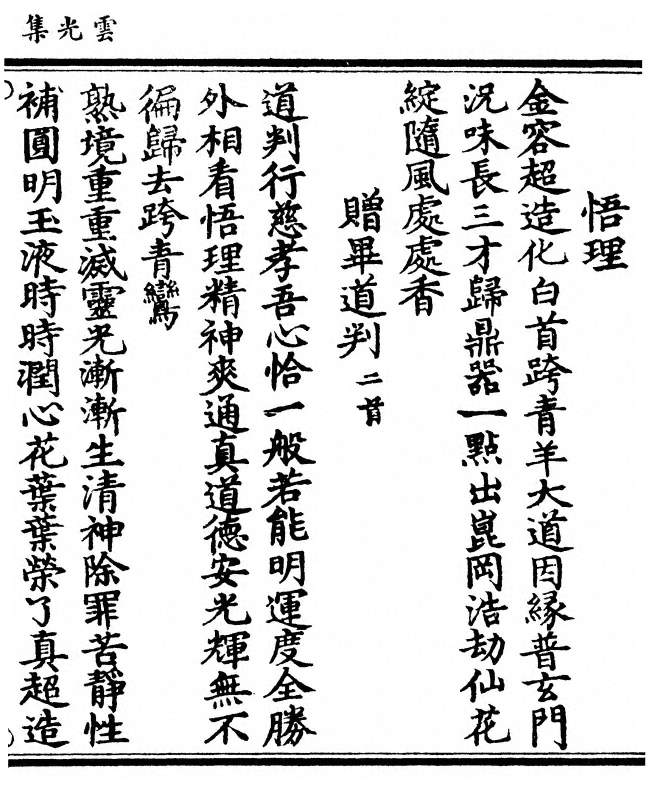 雲光集
悟理
金容超造化白首跨青羊大道因緣普玄門
況味長三才歸鼎器一點出崑岡浩劫仙花
綻隨風處處香
贈畢道判二首
道判行慈孝吾心恰一般若能明運度全勝
外相看悟理精神爽通真道德安光輝無不
徧歸去跨青鸞
熟境重重滅靈光漸漸生清神除罪苦靜性
補圓明玉液時時潤心花葉葉榮了真超造